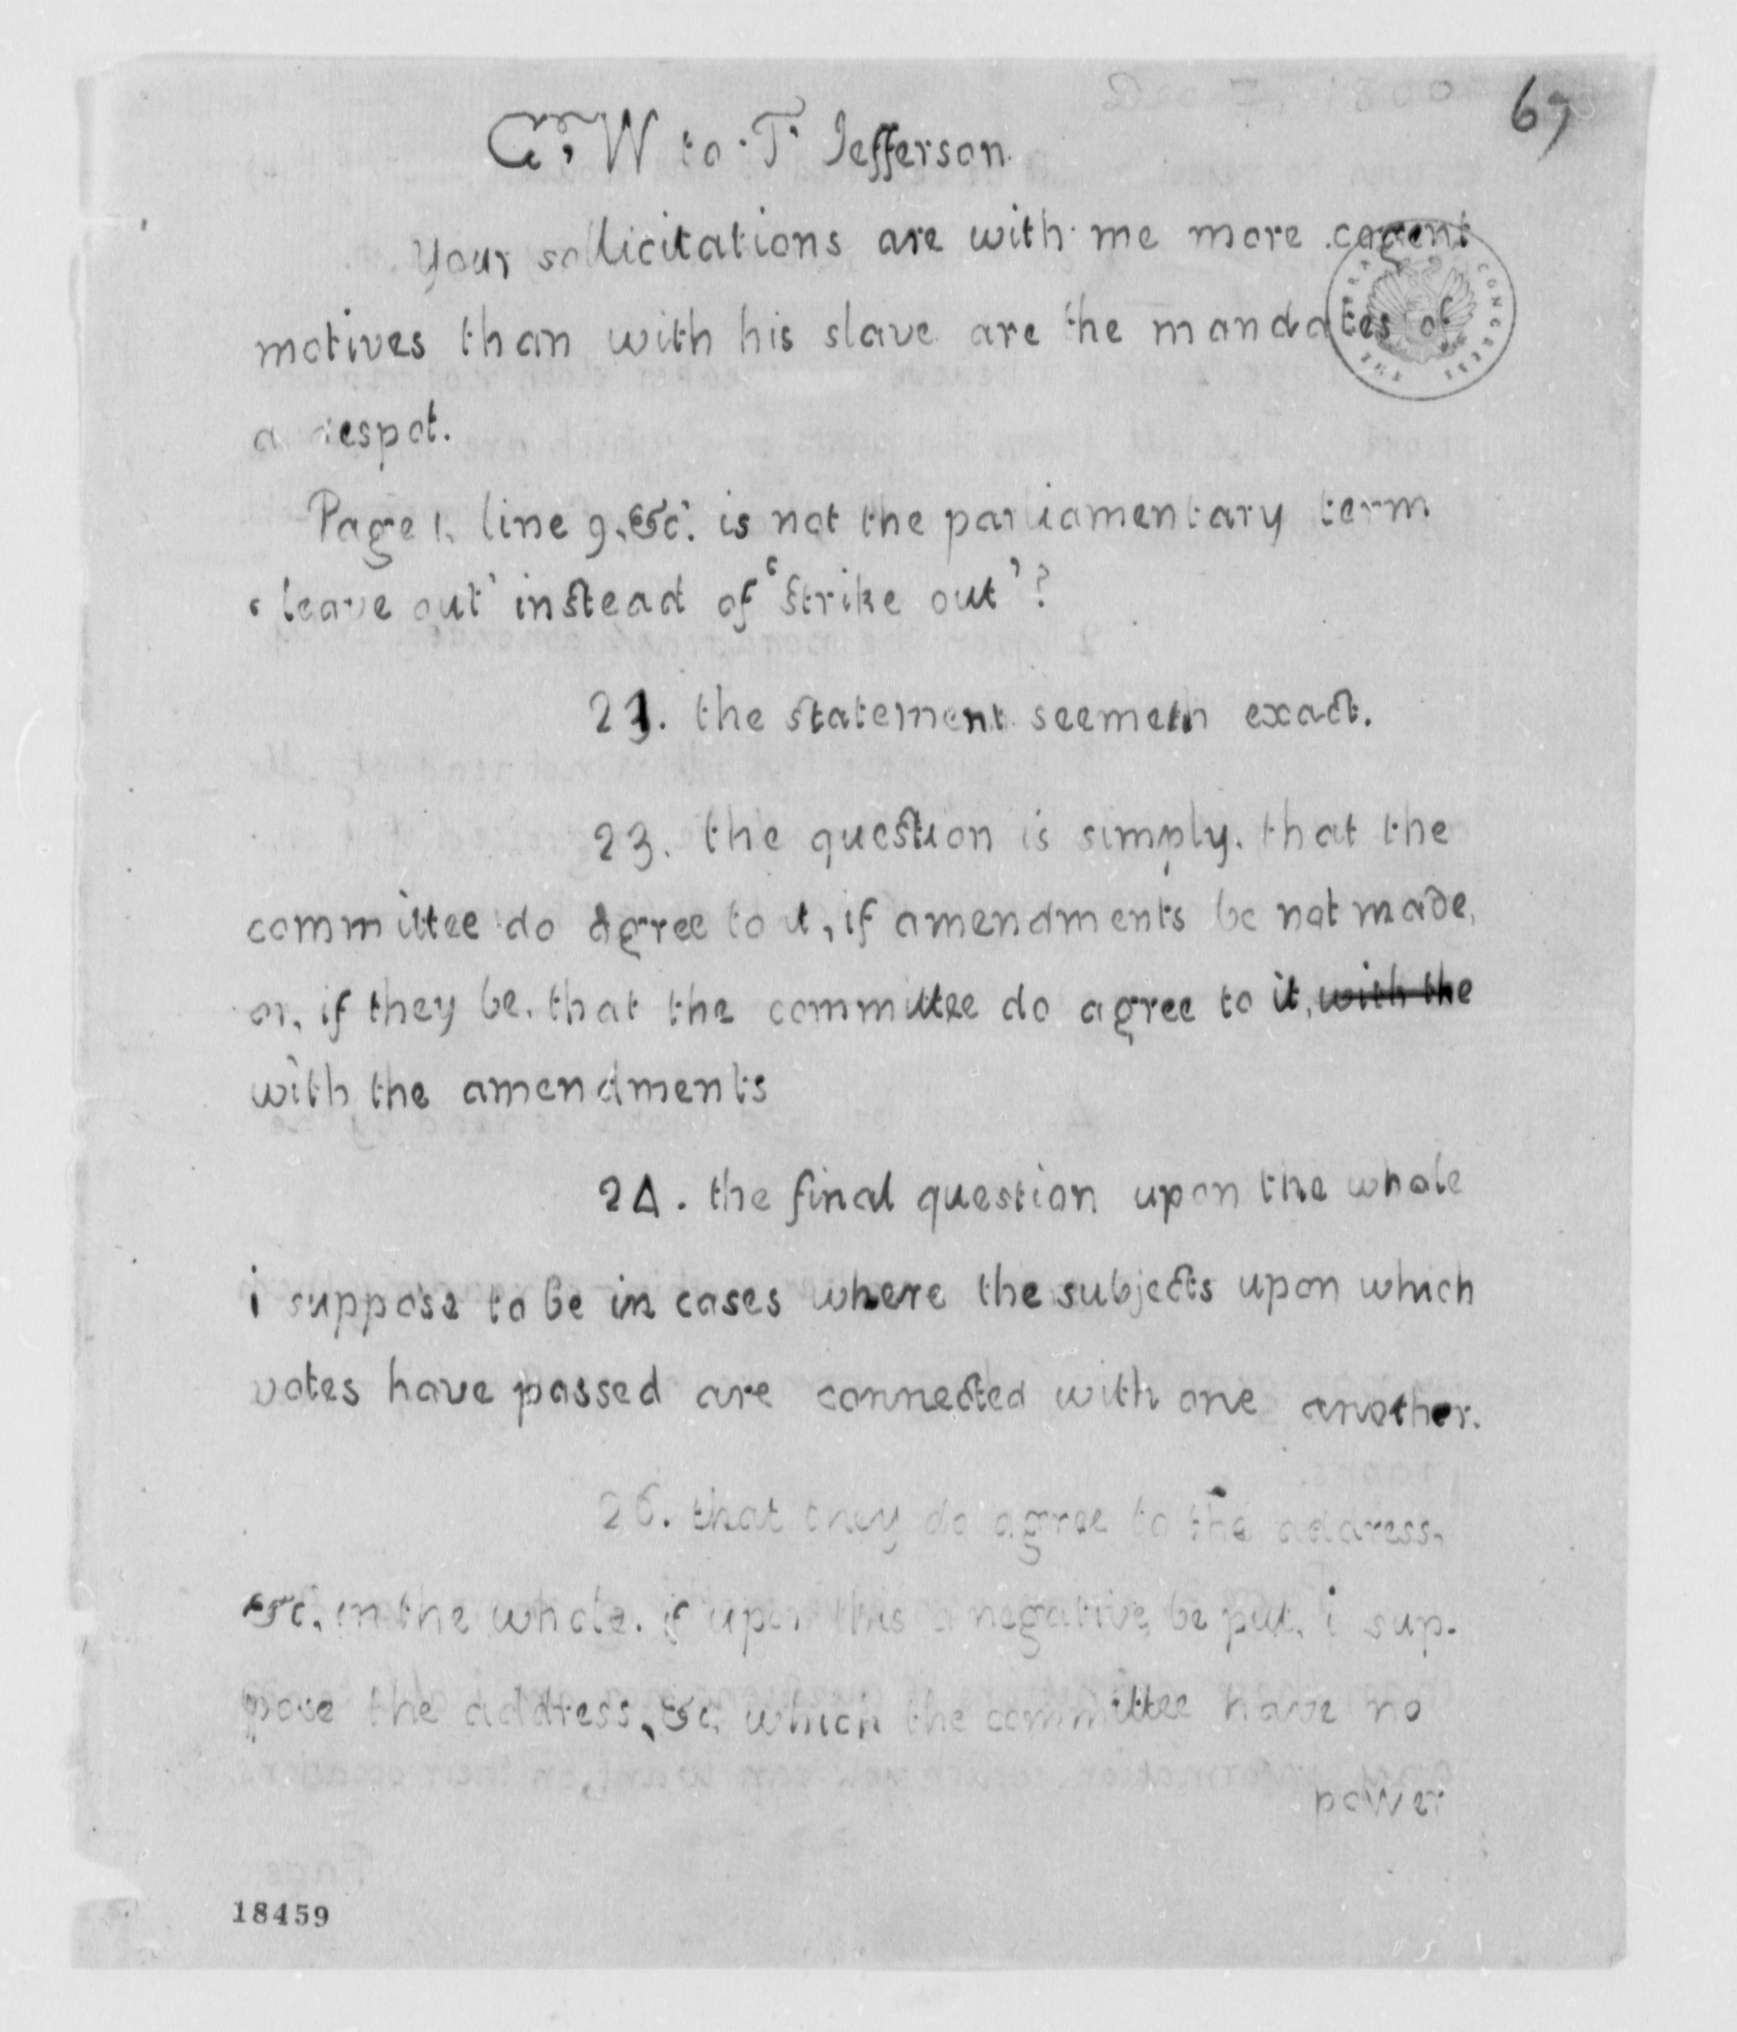 67
G, W to T Jefferson.
Your sollicitations are with me more cogent
motives than with his slave are the mandates of
a despot.
Page 1, line 9, &c. is not the parliamentary term
'leave out' instead of 'strike out'?
21. the statement seemeth exact.
23. the question is simply, that the
committee do agree to it, if amendments be not made,
or, if they be, that the committee do agree to it, with the
with the amendments
24. the final question upon the whole
i suppose to be in cases where the subjects upon which
votes have passed are connected with one another.
26. that they do agree to the address,
&c, in the whole. if upon this a negative be put, i sup-
pose the address, &c, which the committee have no
power
18459
THE LIBRARY CONGRESS